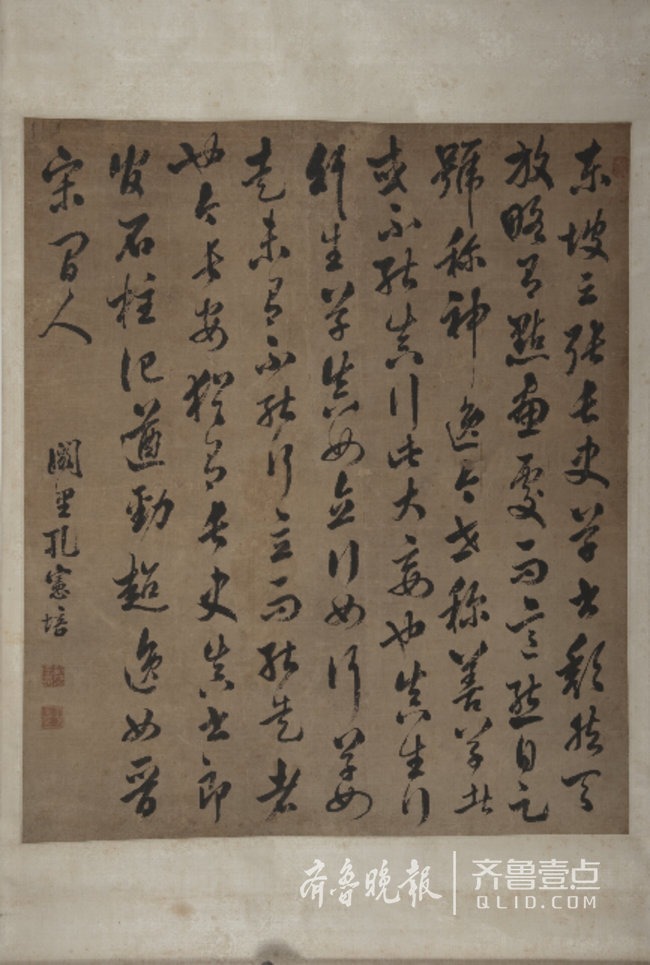 東坡云張長史草書頹然天
放略有點畫處而意態自足
號稱神逸今世稱善草者
或不能真行此大妄也真生行
行生草真如立行如行草如
走未有不能行立而能走者
也今長安猶有長史真書郎
官石柱记遒勁超逸如晉
宋間人
闕里孔憲培
齐鲁晚报
齐鲁壹点
QLID.COM